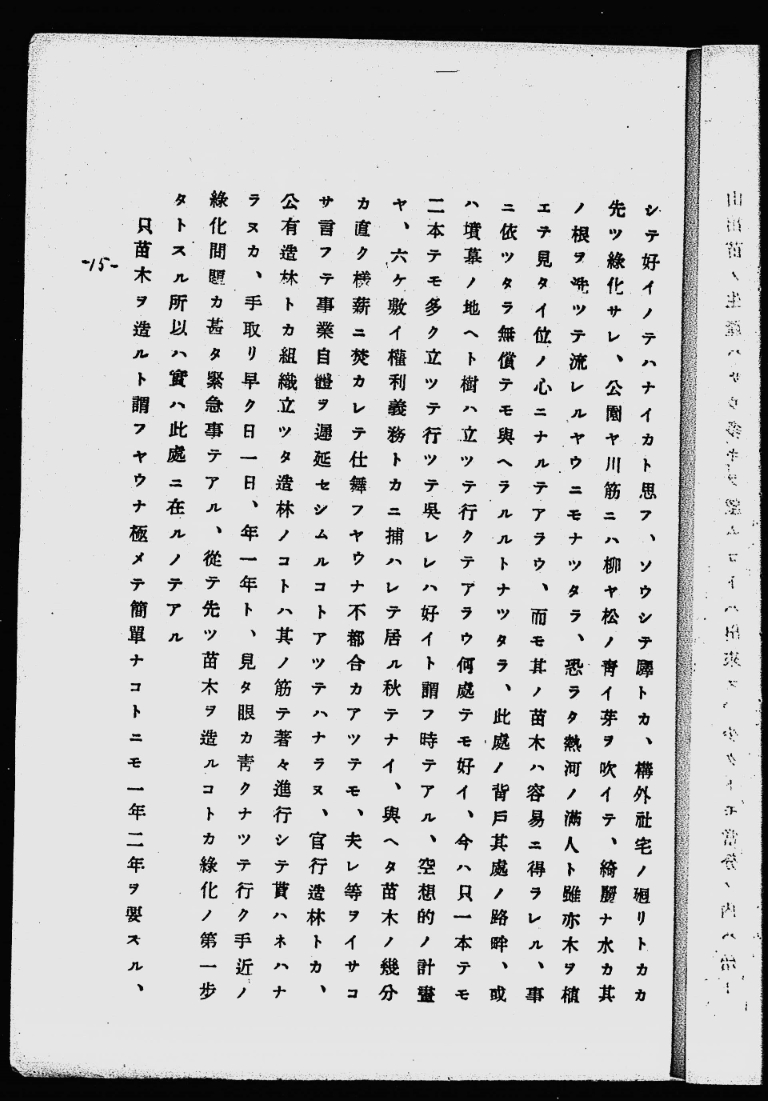 シテ好イノテハナイカト思フ、ソウシテ驛トカ、構外社宅ノ廻リトカカ
先ツ綠化サレ、公園ヤ川筋ニハ柳ヤ松ノ靑イ芽ヲ吹イテ、綺麗ナ水カ其
ノ根ヲ洗ツテ流レルヤウニモナツタラ、恐ラク熱河ノ滿人ト雖亦木ヲ植
エテ見タイ位ノ心ニナルテアラウ、而モ其ノ苗木ハ容易ニ得ラレル、事
ニ依ツタラ無償テモ與ヘラルルトナツタラ、此處ノ背戶其處ノ路畔、或
ハ墳墓ノ地ヘト樹ハ立ツテ行クテアラウ何處テモ好イ、今ハ只一本テモ
二本テモ多ク立ツテ行ツテ吳レレハ好イト謂フ時テアル、空想的ノ計畫
ヤ、六ケ敷イ權利義務トカニ捕ハレテ居ル秋テナイ、與ヘタ苗木ノ幾分
カ直ク樣薪ニ焚カレテ仕舞フヤウナ不都合カアツテモ、夫レ等ヲイサコ
サ言フテ事業自體ヲ遲延セシムルコトアツテハナラヌ、官行造林トカ、
公有造林トカ組織立ツタ造林ノコトハ其ノ筋テ著々進行シテ貰ハネハナ
ラヌカ、手取リ早ク日一日、年一年ト、見タ眼カ靑クナツテ行ク手近ノ
綠化問題カ甚タ緊急事テアル、從テ先ツ苗木ヲ造ルコトカ綠化ノ第一步
タトスル所以ハ實ハ此處ニ在ルノテアル
只苗木ヲ造ルト謂フヤウナ極メテ簡單ナコトニモ一年二年ヲ要スル、
-15-